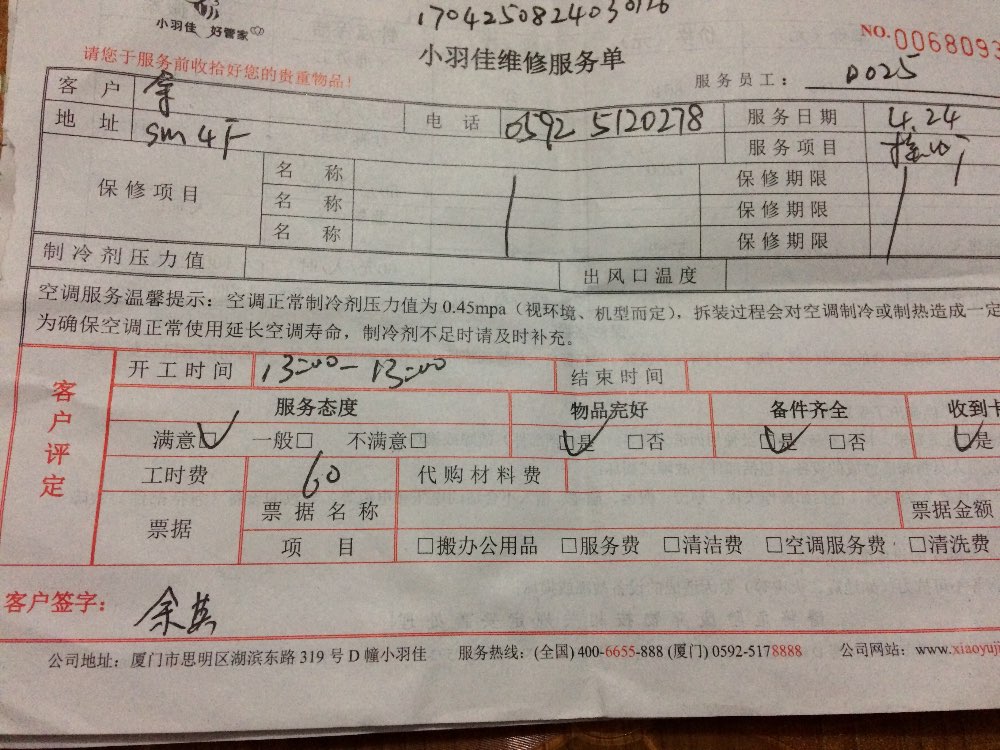 小羽佳 好管家
1704250824030126
NO.0068093
小羽佳维修服务单
请您于服务前收拾好您的贵重物品!
服务员工: D025
客户 余
地址 SM4F 电话 0592 5120278 服务日期 4.24
服务项目
保修项目 名称 保修期限
名称 保修期限
名称 保修期限
制冷剂压力值 出风口温度
空调服务温馨提示:空调正常制冷剂压力值为0.45mpa(视环境、机型而定),拆装过程会对空调制冷或制热造成一定
为确保空调正常使用延长空调寿命,制冷剂不足时请及时补充。
客户评定
开工时间 13:00-13:00 结束时间
服务态度 物品完好 备件齐全 收到卡
满意☑ 一般□ 不满意□ ☑是 □否 ☑是 □否 ☑是
工时费 60 代购材料费
票据 票据名称 票据金额
项目 □搬办公用品 □服务费 □清洁费 □空调服务费 □清洗费
客户签字: 余英
公司地址:厦门市思明区湖滨东路319号D幢小羽佳 服务热线:(全国)400-6655-888 (厦门)0592-5178888 公司网站:www.xiaoyuji